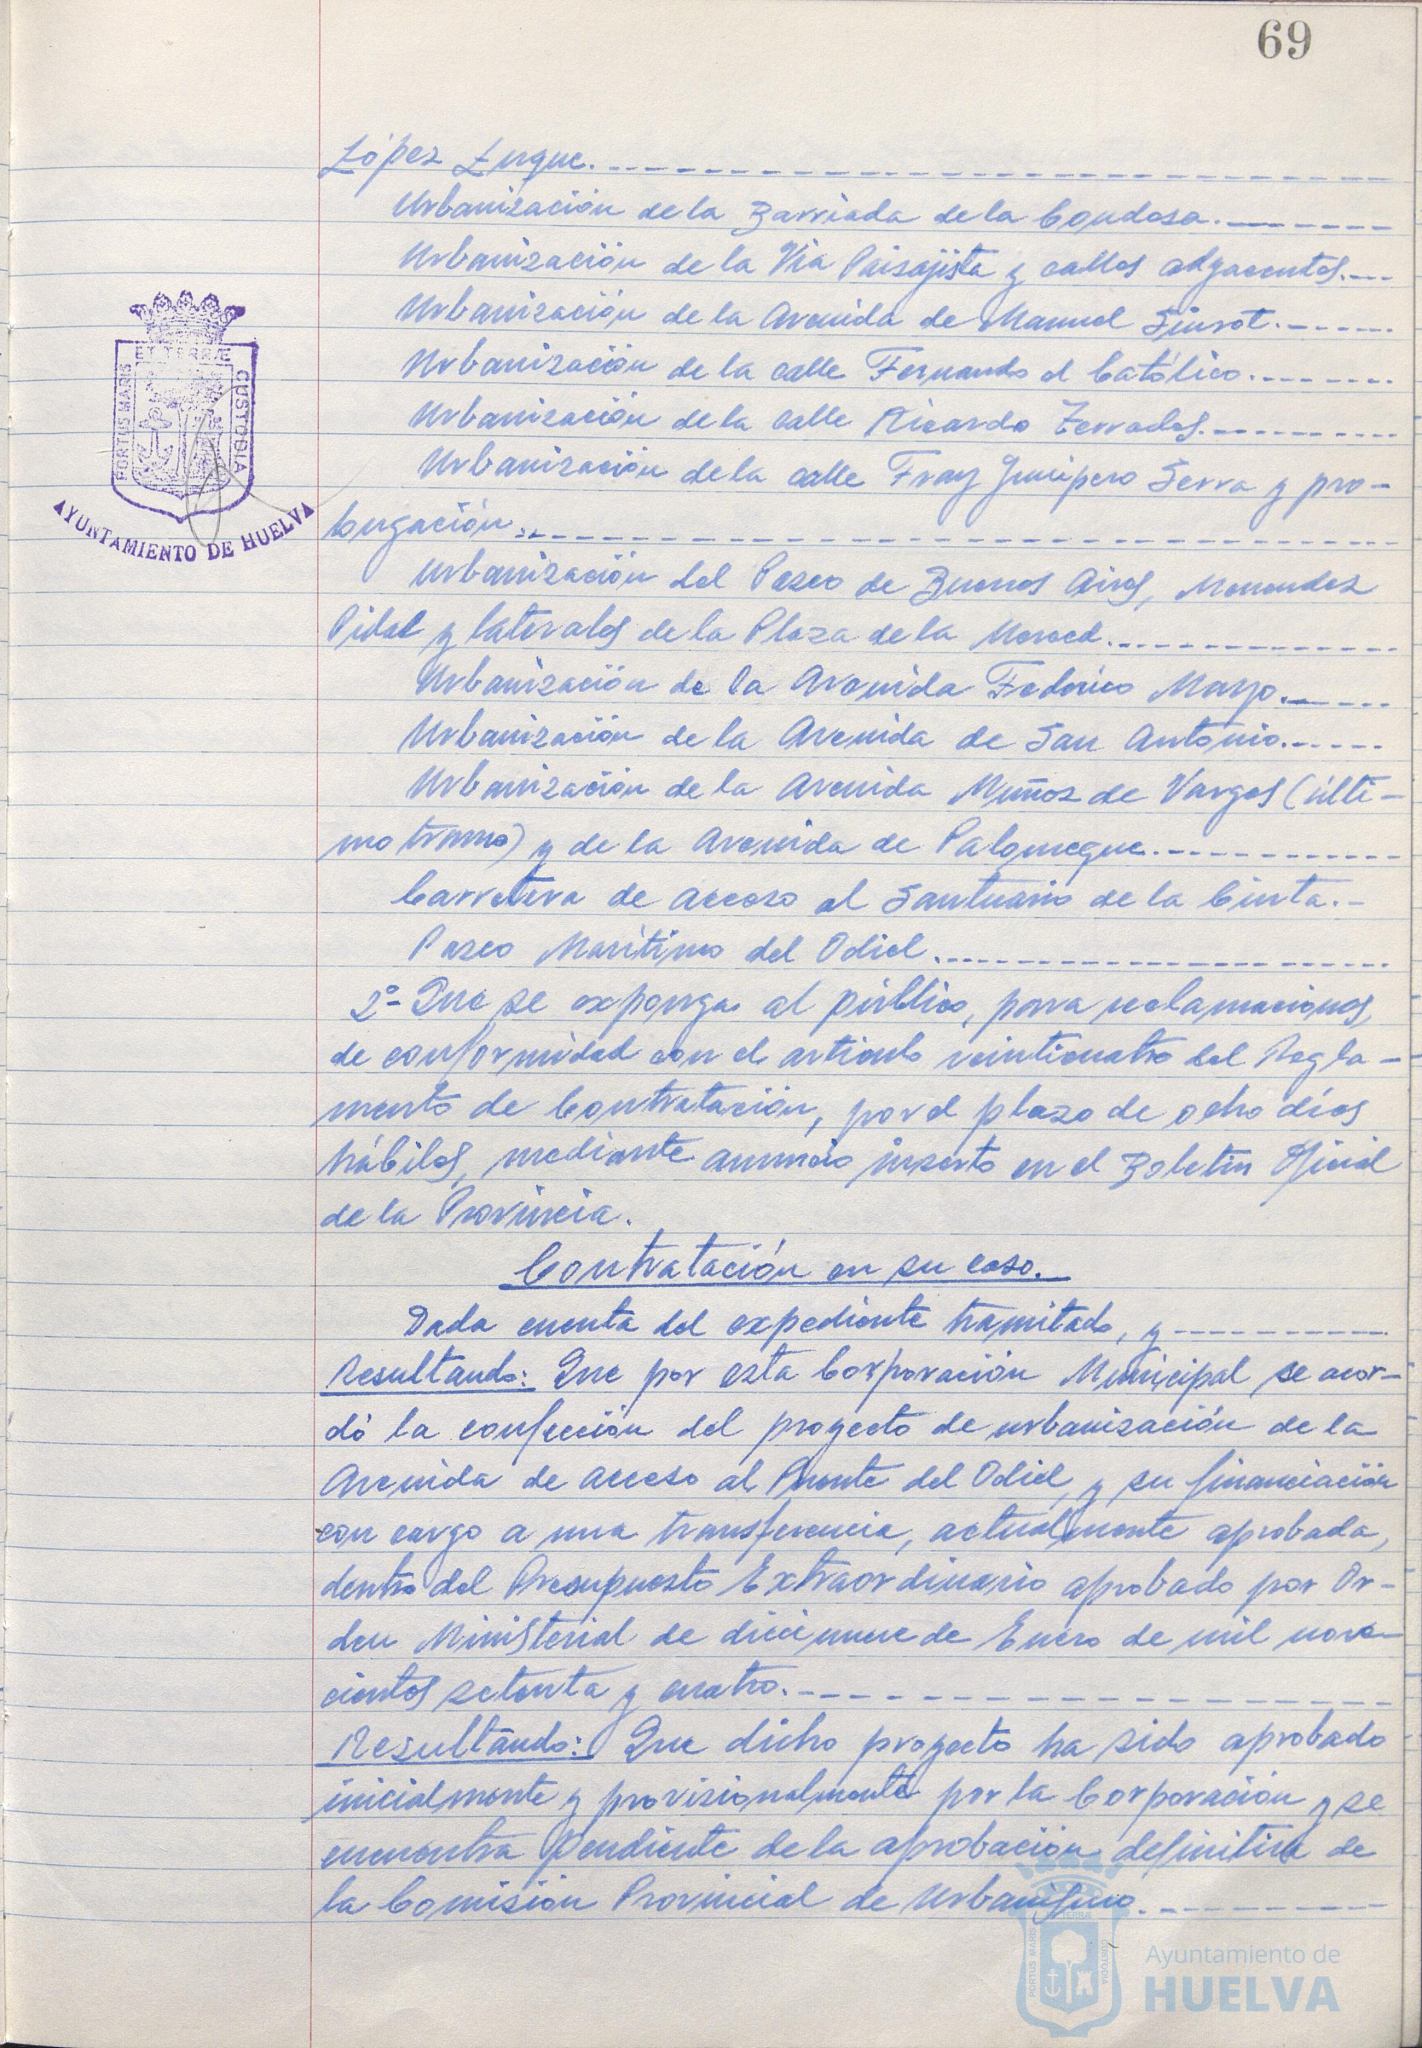 69
López Luque.
Urbanización de la Barriada de la Condesa.
Urbanización de la Vía Paisajista y calles adyacentes.
Urbanización de la Avenida de Manuel Siurot.
Urbanización de la calle Fernando el Católico.
Urbanización de la calle Ricardo Terrades.
Urbanización de la calle Fray Junípero Serra y pro-
longación.
ET TERRÆ
PORTUS MARIS
CUSTODIA
AYUNTAMIENTO DE HUELVA
Urbanización del Paseo de Buenos Aires, Menendez
Pidal y laterales de la Plaza de la Merced.
Urbanización de la Avenida Federico Mayo.
Urbanización de la Avenida de San Antonio.
Urbanización de la Avenida Muñoz de Vargas (últi-
mo tramo) y de la Avenida de Palomeque.
Carretera de acceso al Santuario de la Cinta.-
Paseo Marítimo del Odiel.
2º- Que se exponga al público, para reclamaciones,
de conformidad con el artículo veinticuatro del Regla-
mento de Contratación, por el plazo de ocho días
hábiles, mediante anuncio inserto en el Boletín Oficial
de la Provincia.
Contratación en su caso.
Dada cuenta del expediente tramitado, y
Resultando: Que por esta Corporación Municipal, se acor-
dó la confección del proyecto de urbanización de la
Avenida de acceso al Puente del Odiel, y su financiación
con cargo a una transferencia, actualmente aprobada,
dentro del Presupuesto Extraordinario aprobado por Or-
den Ministerial de diecinueve de Enero de mil nove-
cientos setenta y cuatro.
Resultando: Que dicho proyecto ha sido aprobado
inicialmente y provisionalmente por la Corporación y se
encuentra pendiente de la aprobación definitiva de
la Comisión Provincial de Urbanismo.
PORTUS MARIS
CUSTODIA
Ayuntamiento de
HUELVA